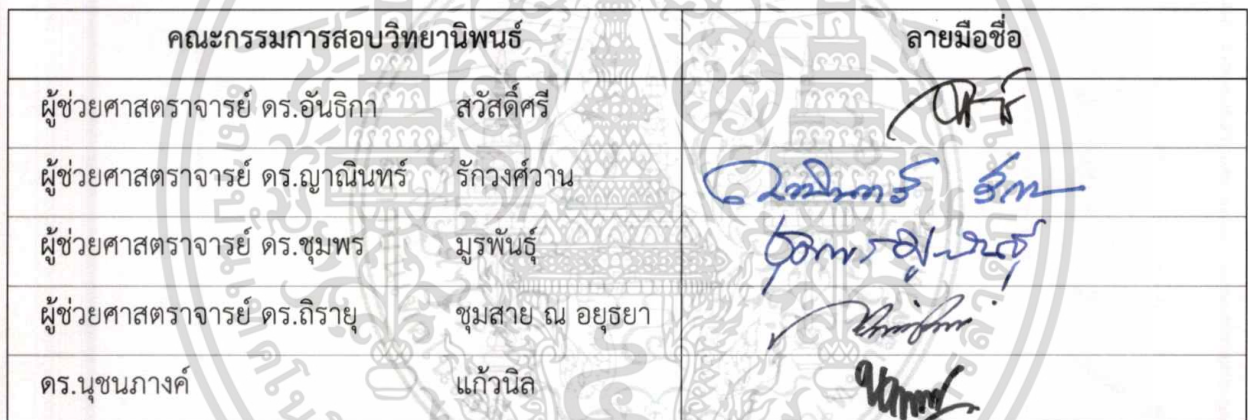 คณะกรรมการสอบวิทยานิพนธ์ ลายมือชื่อ
ผู้ช่วยศาสตราจารย์ ดร.อันธิกา สวัสดิ์ศรี
ผู้ช่วยศาสตราจารย์ ดร.ญาณินทร์ รักวงศ์วาน
ผู้ช่วยศาสตราจารย์ ดร.ชุมพร มูรพันธุ์
ผู้ช่วยศาสตราจารย์ ดร.ถิรายุ ชุมสาย ณ อยุธยา
ดร.นุชนภางค์ แก้วนิล